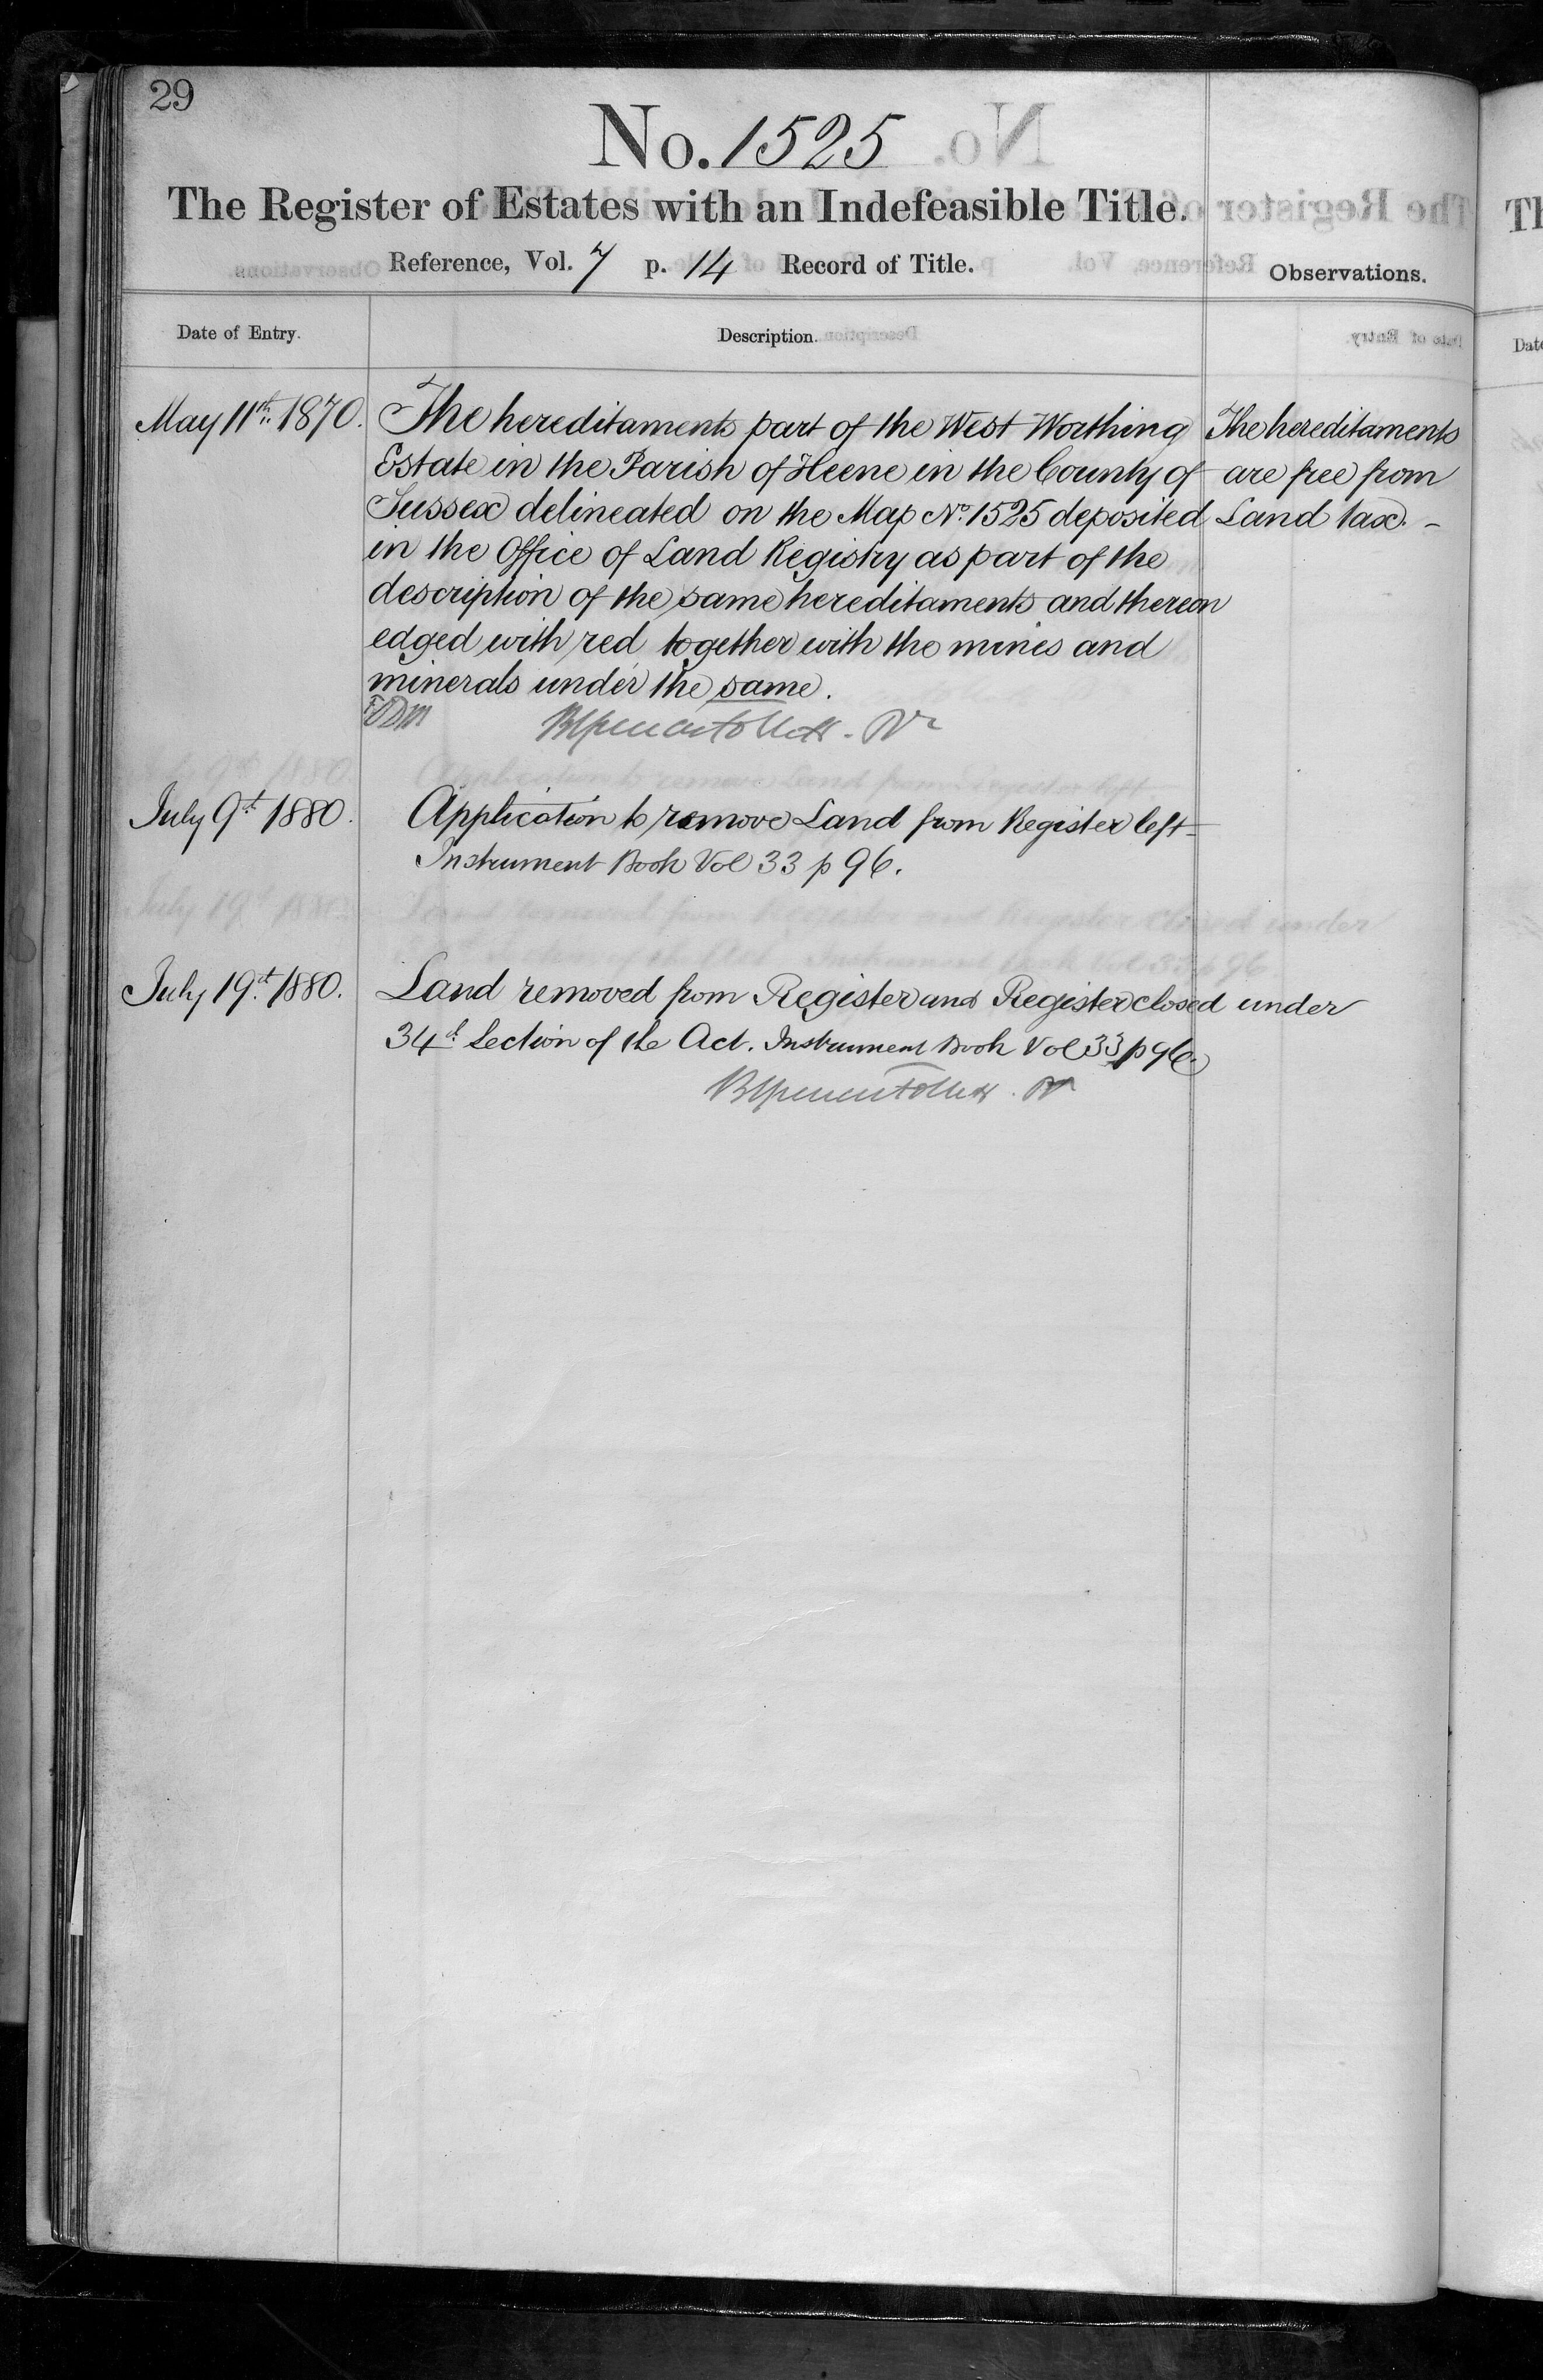 29
No. 1525
The Register of Estates with an Indefeasible Title.
Reference, Vol. 7 p. 14 Record of Title.
Observations.
Date of Entry.
Description.
May 11th 1870.
The hereditaments part of the West Worthing
Estate in the Parish of Heene in the County of
Sussex delineated on the Map No. 1525 deposited
in the Office of Land Registry as part of the
description of the same hereditaments and thereon
edged with red together with the mines and
minerals under the same.
The hereditaments
are free from
Land tax. -
July 9th 1880.
Application to remove Land from Register left
Instrument Book Vol 33 p 96.
July 19th 1880.
Land removed from Register and Register closed under
34th Section of the Act. Instrument Book Vol 33 p 96.